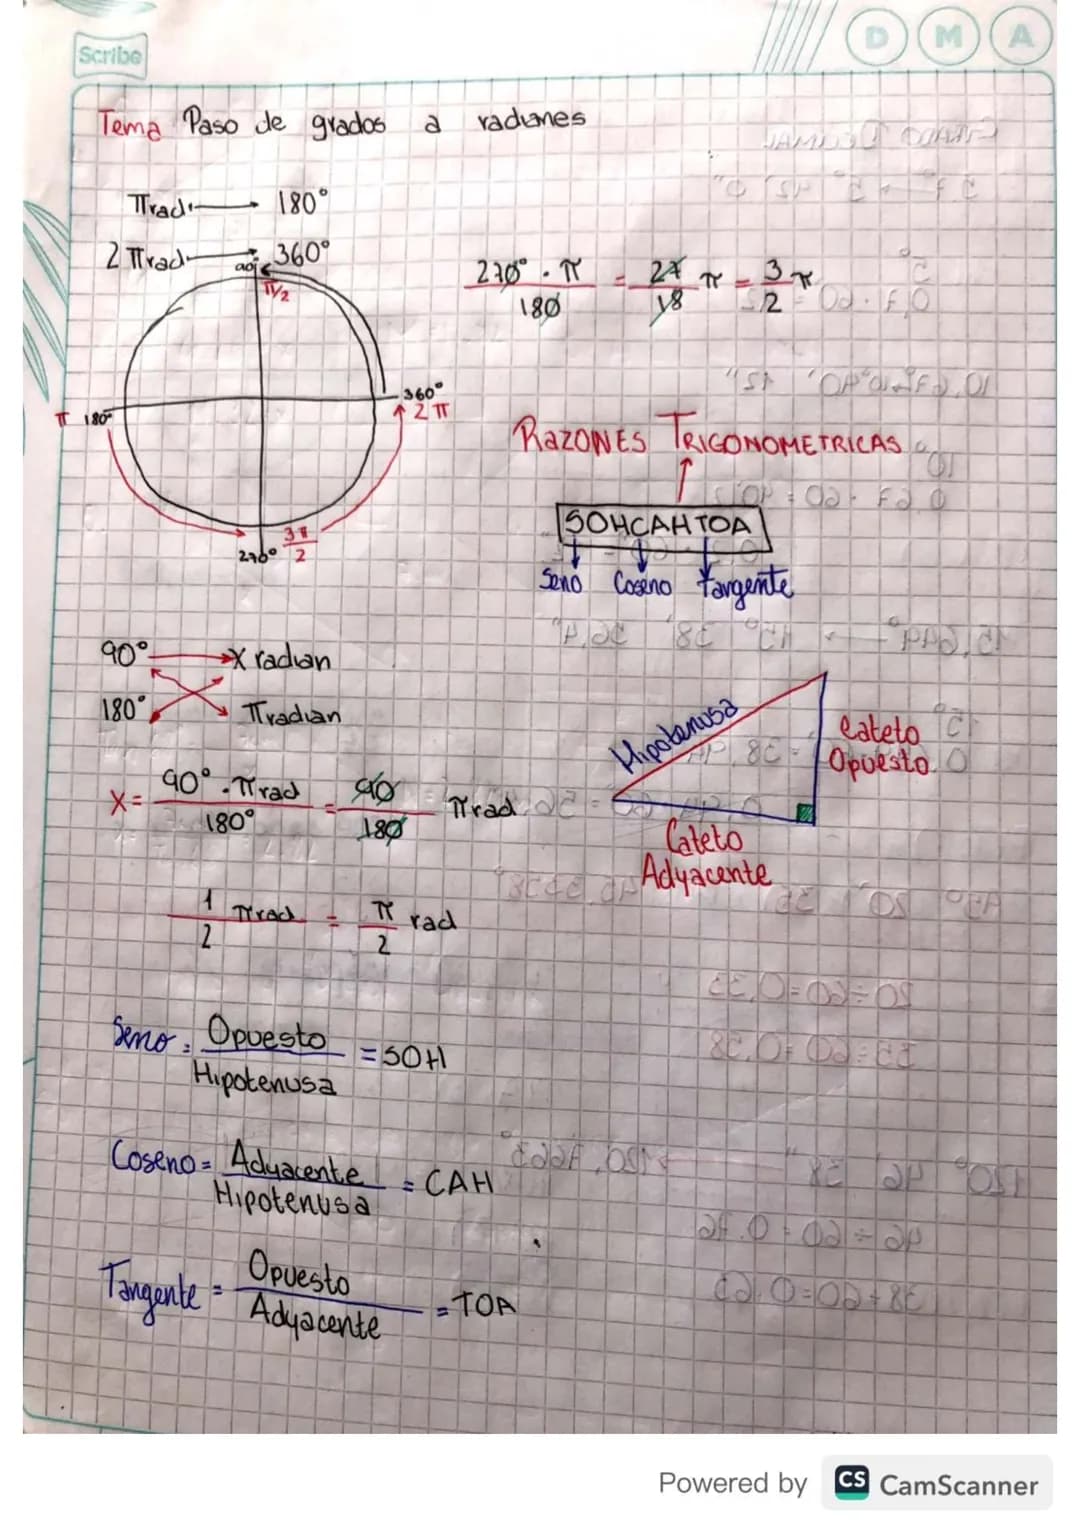 Scribe
D M A
Tema Paso de grados a radianes
πrad → 180°
2πrad → 360°
90°
π/2
360°
2π
π 180°
270° 3π/2
270° · π / 180 = 27/18 π = 3/2 π
RAZONES TRIGONOMETRICAS
SOHCAHTOA
Seno Coseno Tangente
90° → X radian
180° πradian
X = 90° . πrad / 180° = 90/180 πrad
1/2 πrad = π/2 rad
Hipotenusa
Cateto
Opuesto
Cateto
Adyacente
Seno = Opuesto / Hipotenusa = SOH
Coseno = Adyacente / Hipotenusa = CAH
Tangente = Opuesto / Adyacente = TOA
Powered by CS CamScanner